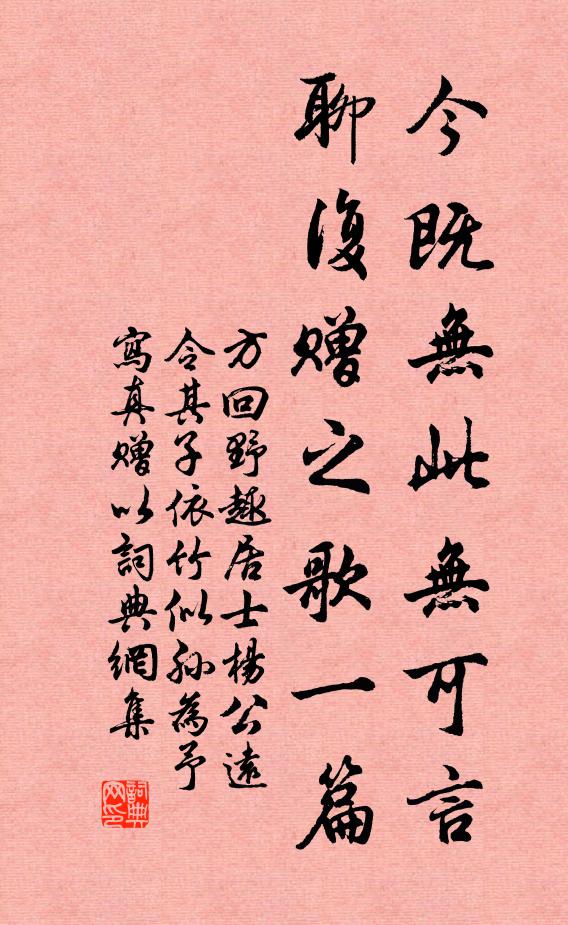 今既無此無可言
聊復赠之歌一篇
方回野趣居士楊公遠
令其子依竹似孙為予
寫真赠以詞典網集
詞典网印